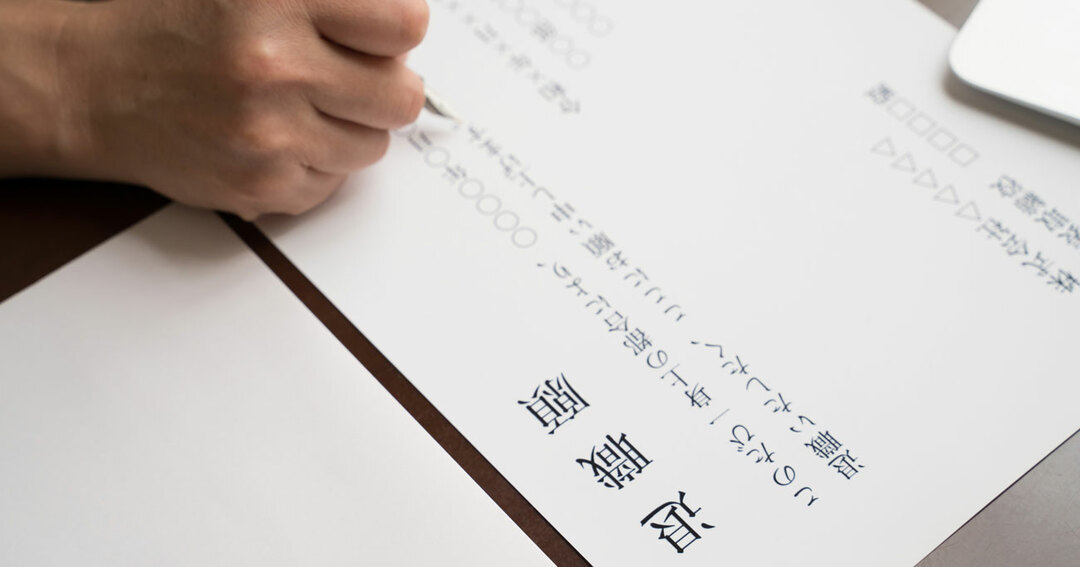 退職願
このたび一身上の都合により、○○○○年○月
退職いたしたく、ここにお願い申し上げます
令和×年×月×
株式会社△△△△△
取締役 □□□□殿